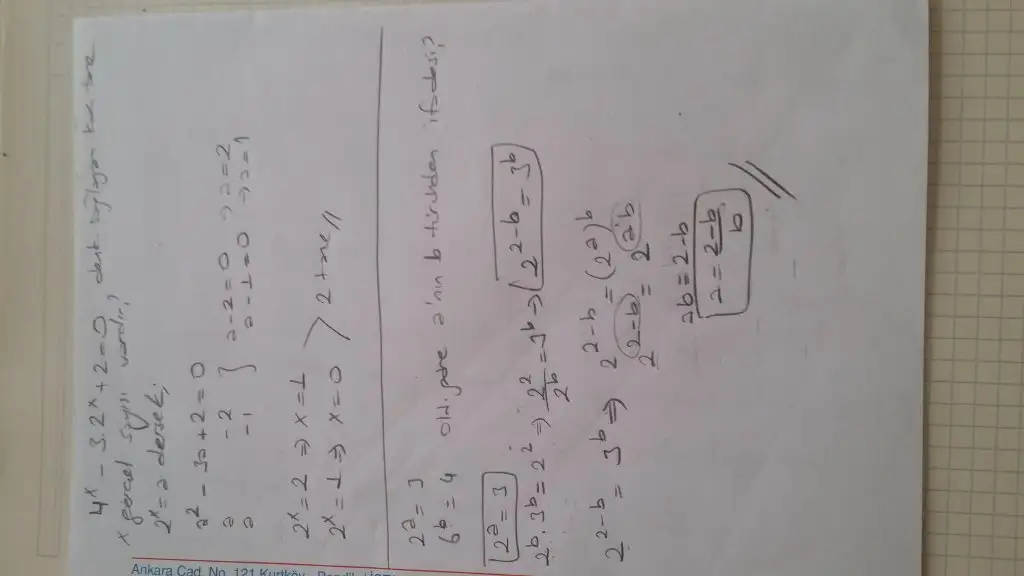 4ˣ - 3.2ˣ + 2 = 0 denk. sağlayan kaç tane
x gerçel sayısı vardır?
2ˣ = a dersek;
a² - 3a + 2 = 0
a -2 } a-2=0 → a=2
a -1 a-1=0 → a=1
2ˣ = 2 ⇒ x = 1
2ˣ = 1 ⇒ x = 0 > 2 tane //
2ᵃ = 3
6ᵇ = 4 old. göre a'nın b türünden ifadesi?
2ᵃ = 3
2ᵇ . 3ᵇ = 2² ⇒ 2²/2ᵇ = 3ᵇ ⇒ 2²⁻ᵇ = 3ᵇ
2²⁻ᵇ = 3ᵇ ⇒ 2²⁻ᵇ = (2ᵃ)ᵇ
2²⁻ᵇ = 2ᵃ·ᵇ
ab = 2-b
a = 2-b/b //
Ankara Cad. No. 121 Kurtköy